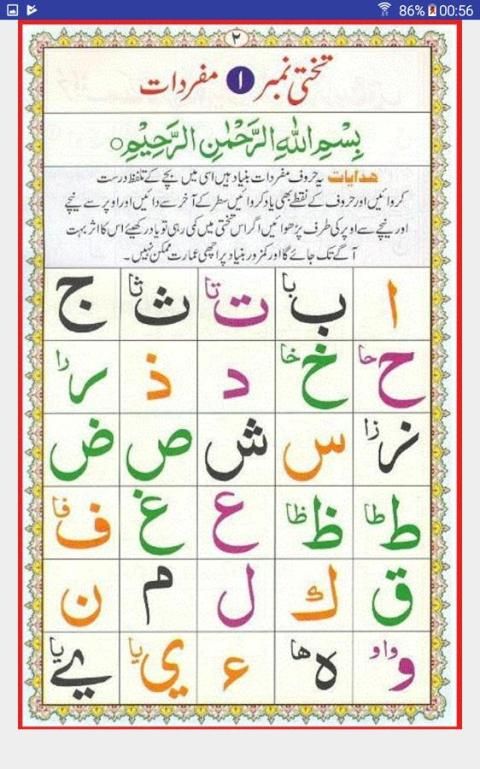 86% 00:56
۲
تختی نمبر ۱ مفردات
بِسْمِ اللّٰهِ الرَّحْمٰنِ الرَّحِيْمِ ○
ھدایات یہ حروف مفردات بنیاد ہیں اسی میں بچے کے تلفظ درست
کروائیں اور حروف کے نقطے بھی یاد کروائیں سطر کے آخر سے دائیں اور اوپر سے نیچے
اور نیچے سے اوپر کی طرف پڑھوائیں اگر اس تختی میں کمی رہی تو یاد رکھیئے اس کا اثر بہت
آگے تک جائے گا اور کمزور بنیاد پر اچھی عمارت ممکن نہیں۔
ا ب با ت تا ث ثا ج
ح حا خ خا د ذ ر را
ز زا س ش ص ض
ط طا ظ ظا ع غ ف فا
ق ك ل م ن
و واو ہ ھا ء ي یا ے یا